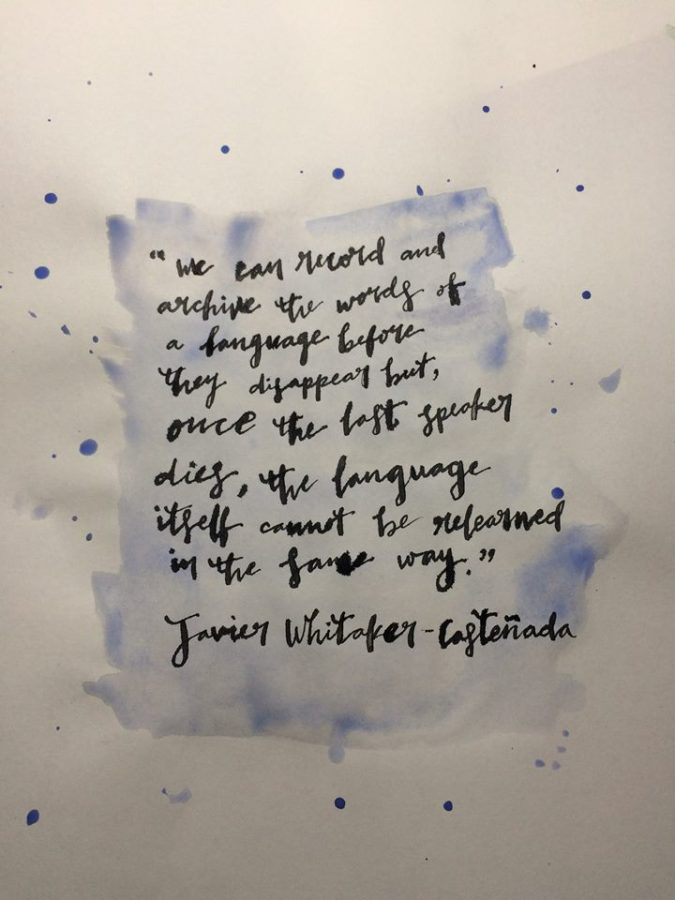 "we can record and
archive the words of
a language before
they disappear but,
once the last speaker
dies, the language
itself cannot be relearned
in the same way."
Javier Whitaker-Casteñada